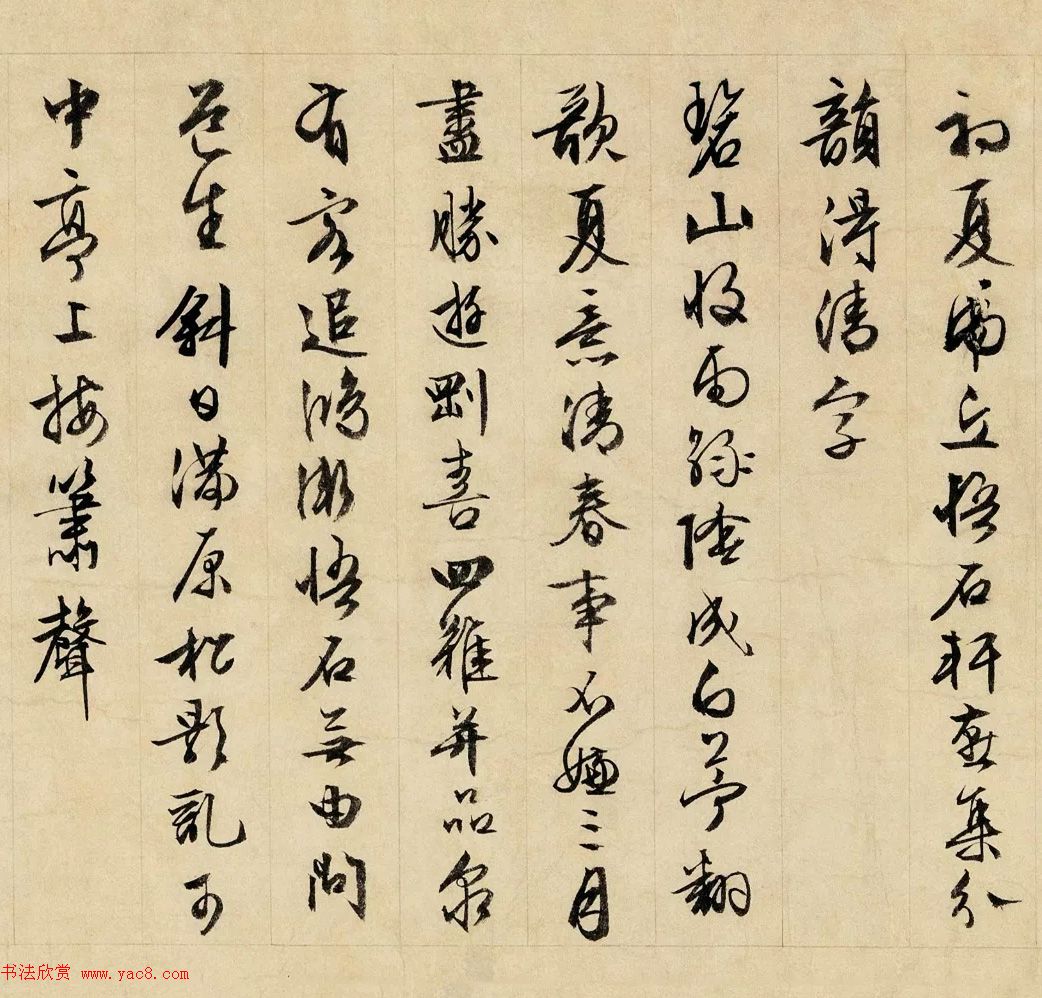 初夏虎丘悟石軒燕集分
韻得清字
碧山收雨綠陰成白苧翻
歌夏意清春事不嫌三月
盡勝遊剛喜四難并品泉
有客追鴻漸悟石無由問
道生斜日滿原松影亂可
中亭上接簫聲
书法欣赏 www.yac8.com